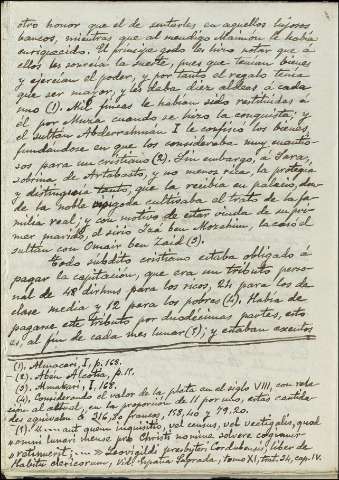 otro honor que el de sentarles en aquellos lujosos
bancos, mientras que al mendigo Maimón le había
enriquecido. El príncipe godo les hizo notar que á
ellos les sonreía la suerte, pues que tenían bienes
y ejercían el poder, y por tanto el regalo tenía
que ser mayor, y les daba diez aldeas á cada
uno (1). Mil fincas le habían sido restituidas á
él por Muza cuando se hizo la conquista; y
el sultán Abderrahman I le confiscó los bienes,
fundándose en que los consideraba muy cuantio-
sos para un cristiano (2). Sin embargo, á Sara,
sobrina de Artobasto, y no menos rica, la protegía
y distinguía tanto, que la recibía en palacio, don-
de la noble visigoda cultivaba el trato de la fa-
milia real; y con motivo de estar viuda de su pri-
mer marido, el sirio Isá ben Mozahim, la casó el
sultán con Omair ben Zaid (3).
Todo súbdito cristiano estaba obligado á
pagar la capitación, que era un tributo perso-
nal de 48 dirhms para los ricos, 24 para los de
clase media y 12 para los pobres (4). Había de
pagarse este tributo por duodécimas partes, esto
es, al fin de cada mes lunar (5); y estaban exentos
(1). Almacari, I, p. 168.
(2). Aben Alcotia, p. 11.
(3). Almakari, I, 168.
(4). Considerando el valor de la plata en el siglo VIII, con rela-
ción al actual, en la proporción de 11 por uno, estas cantida-
des equivalen á 316,80 francos, 158,40 y 79,20.
(5). «..... aut quem inquisitio, vel census, vel vectigalis, quod
omni lunari mense pro Christi nomine solvere cogimur
retinuerit;.....» Leovigildi presbiteri Cordubensis, liber de
Habitu clericorum, Vid. España Sagrada, tomo XI, trat. 34, cap. IV.